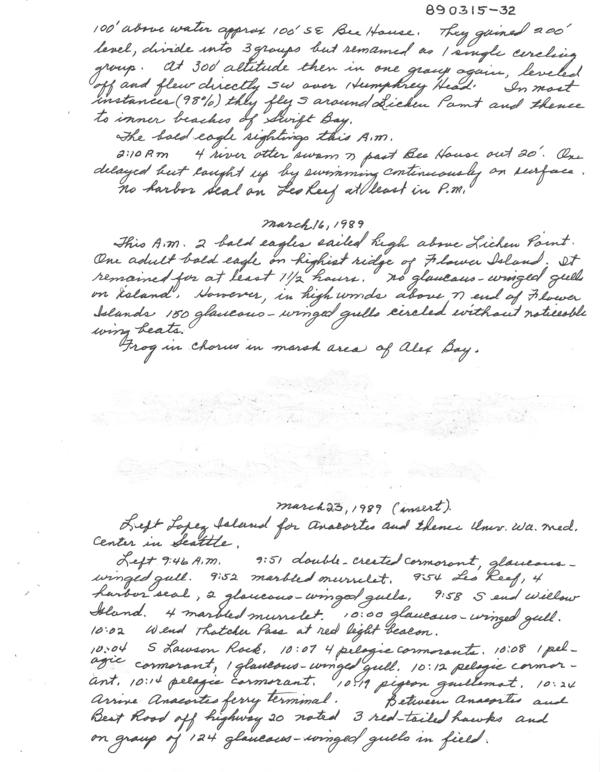 890315-32
100' above water approx 100' SE Bee House. They gained 200'
level, divide into 3 groups but remained as 1 single circling
group. At 300' altitude then in one group again, leveled
off and flew directly SW over Humphrey Head. In most
instances (98%) they fly S around Lichen Point and thence
to inner beaches of Swift Bay.
The bald eagle sightings this A.M.
2:10 P.M 4 river otter swam N past Bee House out 20'. One
delayed but caught up by swimming continuously on surface.
No harbor seal on Leo Reef at least in P.M.
March 16, 1989
This A.M. 2 bald eagles sailed high above Lichen Point.
One adult bald eagle on highist ridge of Flower Island. It
remained for at least 1 1/2 hours. No glaucous-winged gulls
on island. However, in high winds above N end of Flower
Islands 150 glaucous-winged gulls circled without noticeable
wing beats.
Frog in chorus in marsh area of Alex Bay.
March 23, 1989 (insert).
Left Lopez Island for Anacortes and thence Univ. Wa. Med.
Center in Seattle.
Left 9:46 A.M. 9:51 double-crested cormorant, glaucous-
winged gull. 9:52 marbled murrelet. 9:54 Leo Reef, 4
harbor seal, 2 glaucous-winged gulls. 9:58 S end Willow
Island. 4 marbled murrelet. 10:00 glaucous-winged gull.
10:02 W end Thatcher Pass at red light beacon.
10:04 S Lawson Rock. 10:07 4 pelagic cormorants. 10:08 1 pel-
agic cormorant, 1 glaucous-winged gull. 10:12 pelagic cormor-
ant. 10:14 pelagic cormorant. 10:19 pigeon guillemot. 10:24
Arrive Anacortes ferry terminal. Between Anacortes and
Best Road off highway 20 noted 3 red-tailed hawks and
on group of 124 glaucous-winged gulls in field.